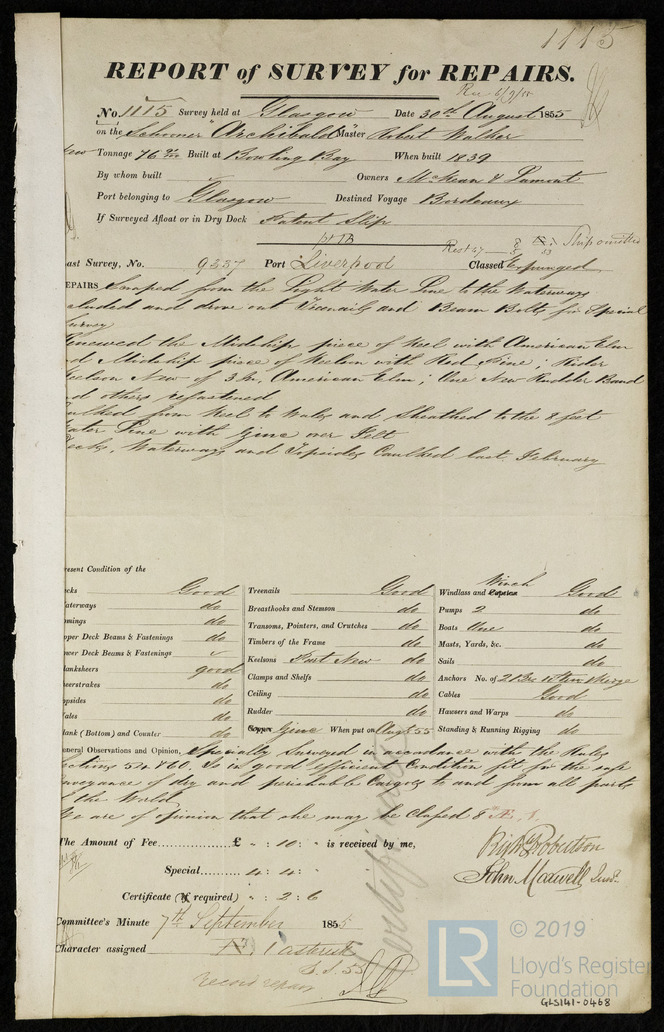 1115
REPORT of SURVEY for REPAIRS.
Rec 6/9/55
No. 1115 Survey held at Glasgow Date 30th August 1855
on the Schooner "Archibald" Master Robert Walker
Tonnage 76 Built at Bowling Bay When built 1839
By whom built Owners McKean & Lamont
Port belonging to Glasgow Destined Voyage Bordeaux
If Surveyed Afloat or in Dry Dock Patent Slip
ast Survey, No. 9237 Port Liverpool Classed Expunged
EPAIRS from the Light Water Line to the Waterways
and drove out Treenails and Beam Bolts for Special
Survey
Renewed the Midship piece of Keel with American Elm
d Midship piece of Kelson with Red Pine; Rider
Keelson New of 3 American Elm; One New Rudder Band
d others refastened
aulked from Keel to Wales and Sheathed to the 8 feet
ater Line with Zinc over Felt
ecks, Waterways and Topsides Caulked last February
resent Condition of the
ecks Good Treenails Good Windlass and Winch Good
aterways do Breasthooks and Stemson do Pumps 2 do
omings do Transoms, Pointers, and Crutches do Boats One do
pper Deck Beams & Fastenings do Timbers of the Frame do Masts, Yards, &c. do
ower Deck Beams & Fastenings Keelsons Part New do Sails do
lanksheers good Clamps and Shelfs do Anchors No. of
heerstrakes do Ceiling do Cables Good
opsides do Rudder do Hawsers and Warps do
ales do Copper Zinc When put on Augt 55 Standing & Running Rigging do
lank (Bottom) and Counter do
eneral Observations and Opinion, Specially Surveyed in accordance with the Rules
ections 54 & 60. Is in good efficient Condition fit for the safe
onveyance of dry and perishable Cargoes to and from all parts
of the World
We are of opinion that she may be Classed Æ. 1.
The Amount of Fee £ " : 10 : " is received by me,
Special 4 : 4 : "
Certificate (if required) " : 2 : 6
Robertson
John Maxwell
Committee's Minute 7th September 1855
Character assigned 1 asterisk
S.S. 55
record repair
Certificate
LR
© 2019
Lloyd's Register
Foundation
GLS141-0468